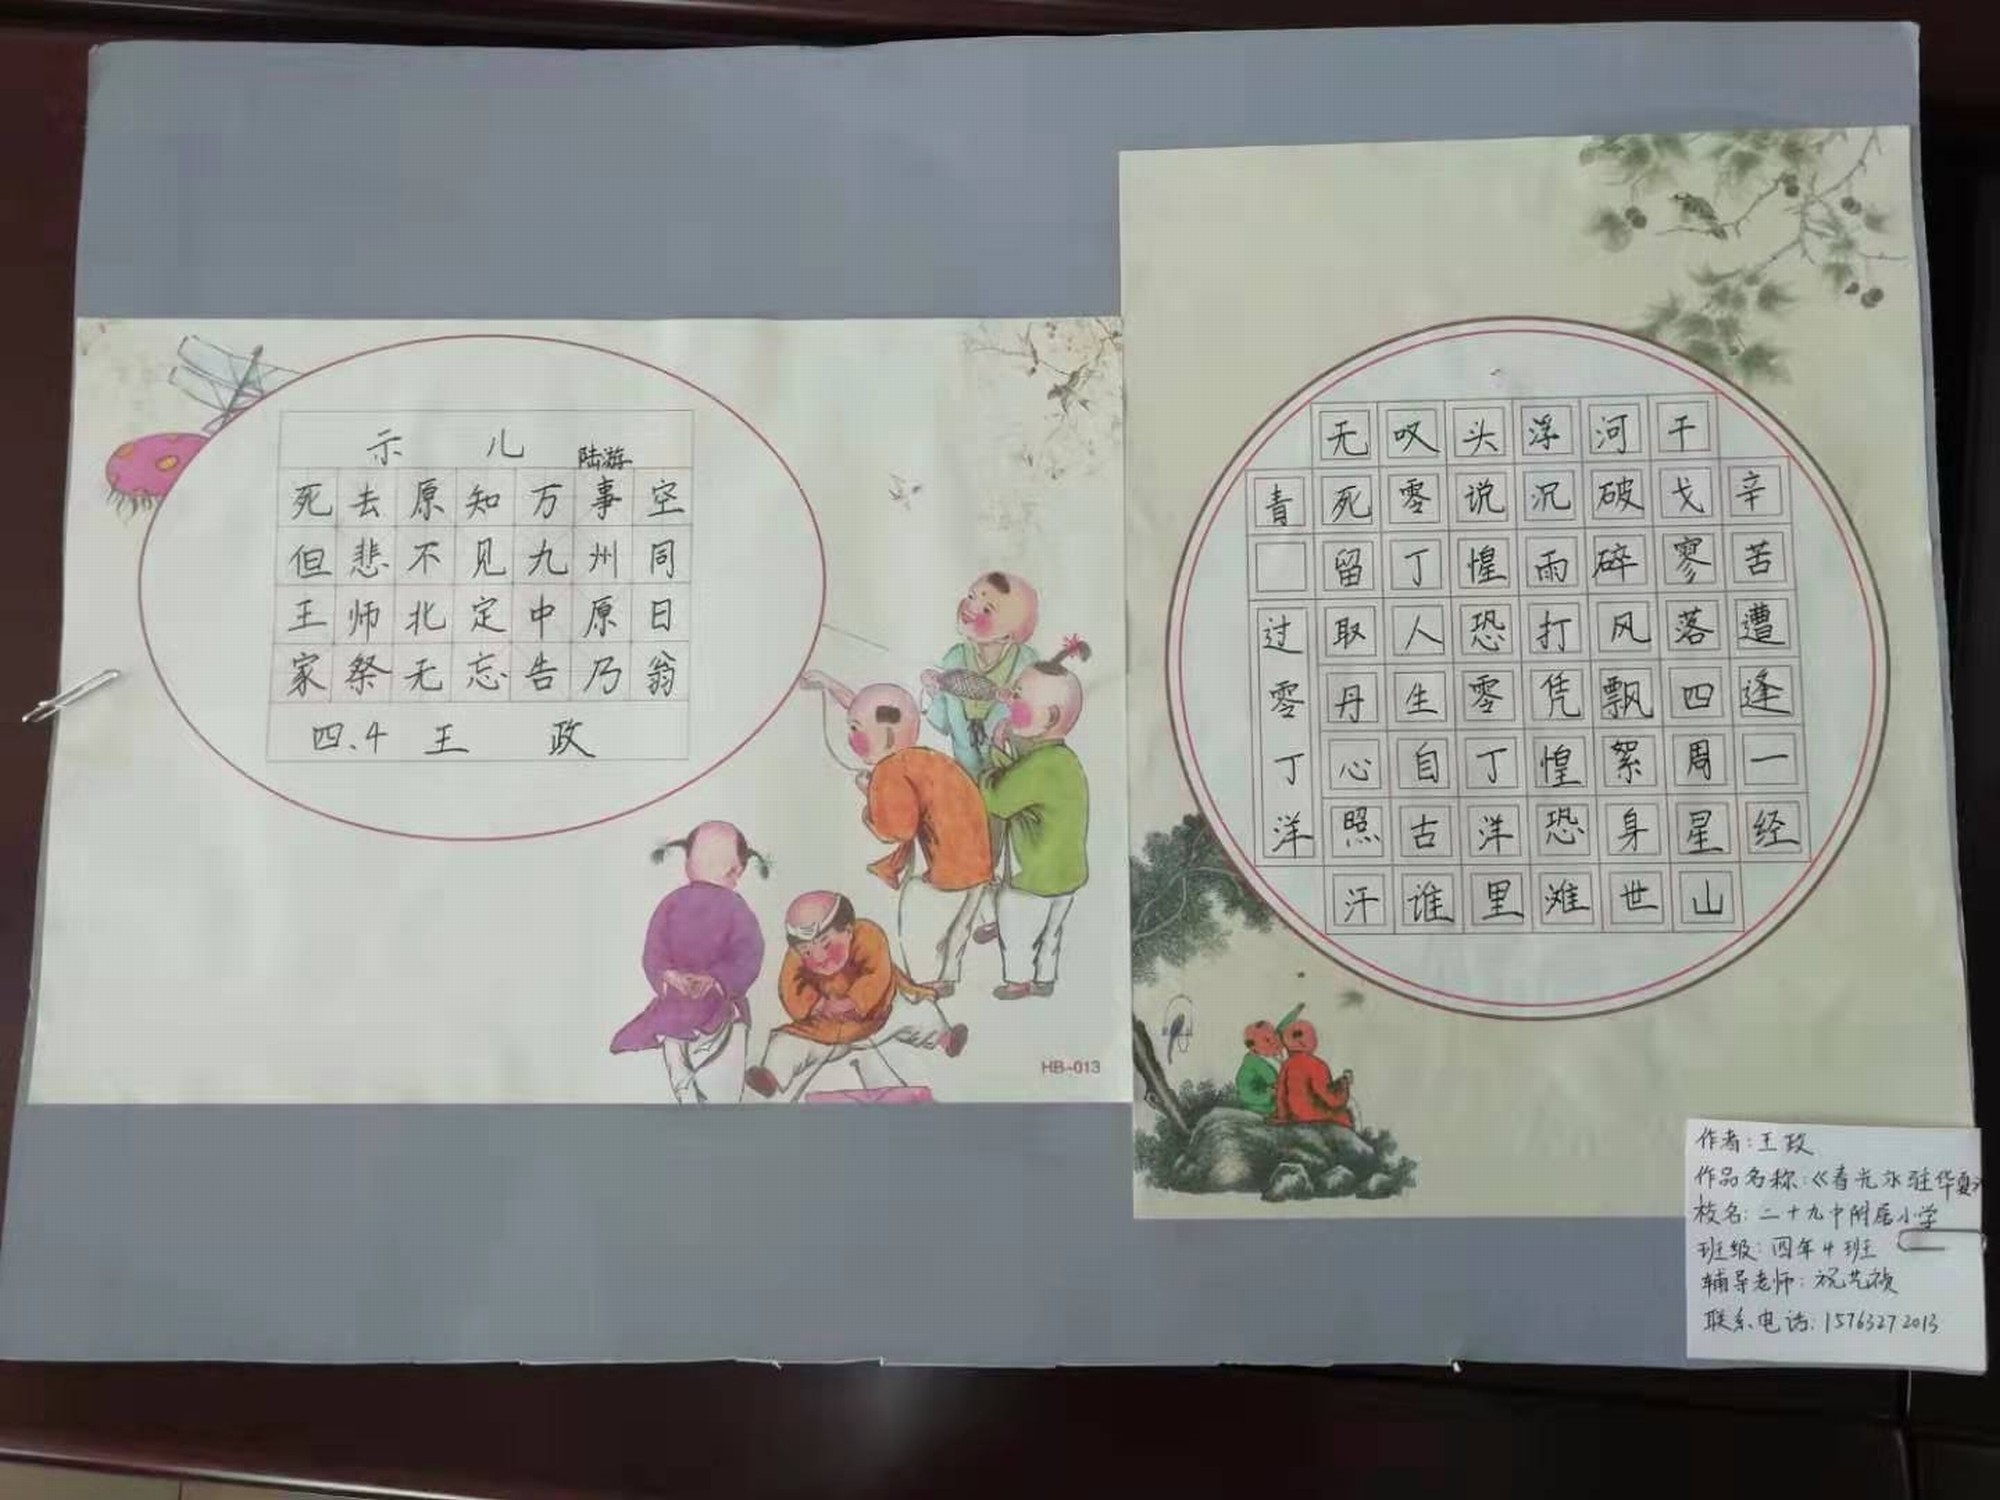 示 儿 陆游
死去原知万事空
但悲不见九州同
王师北定中原日
家祭无忘告乃翁
四.4 王 政
辛苦遭逢一经
干戈寥落四周星山
河破碎风飘絮身世
浮沉雨打凭惶恐滩
头说惶恐零丁洋里
叹零丁人生自古谁
无死留取丹心照汗
青 过零丁洋
HB-013
作者:王政
作品名称:《春光永驻华夏》
校名:二十九中附属小学
班级:四年4班
辅导老师:祝艺
联系电话:15763272013